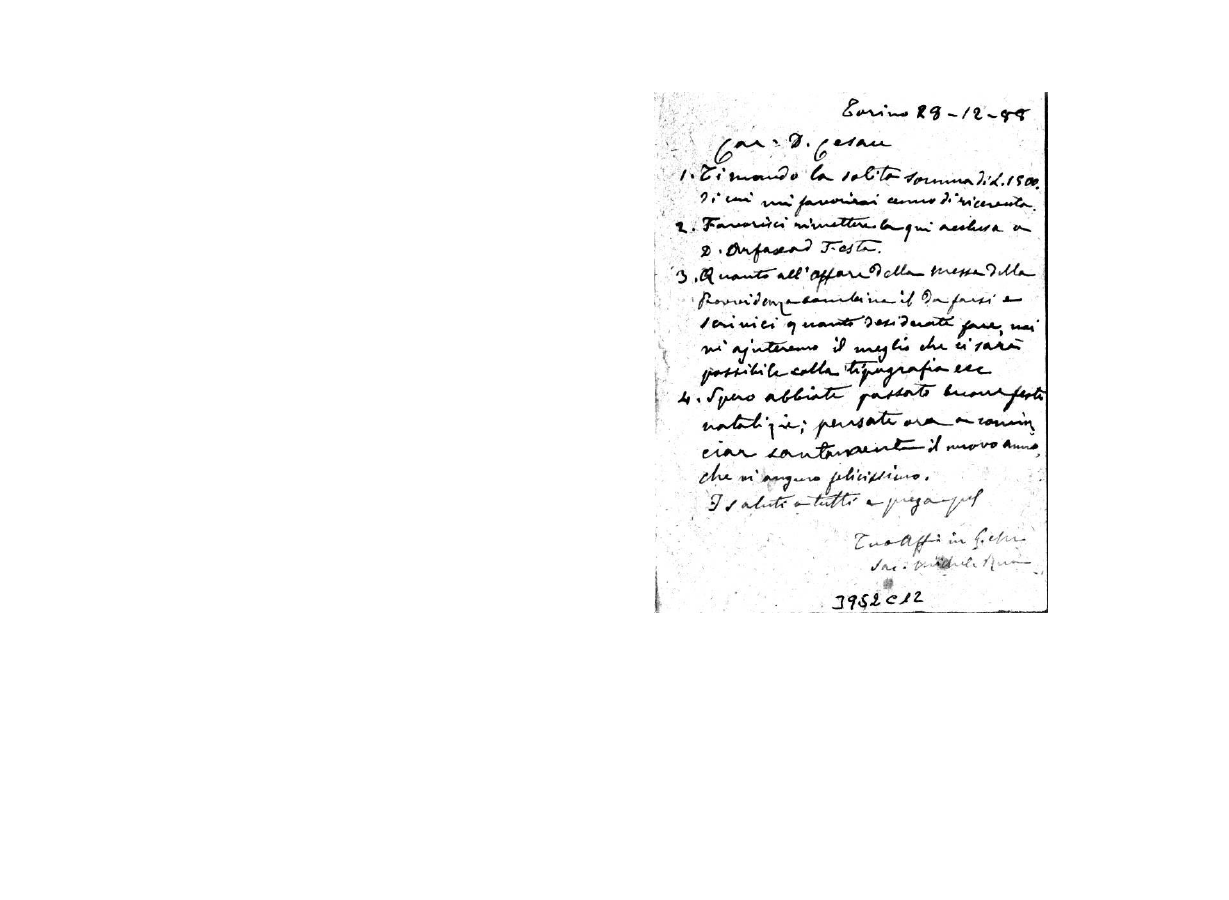 Torino 29-12-88
Car: D. Cesare
1. Ti mando la solita somma di L. 1500.
di cui mi favorirai cenno di ricevuta.
2. Favorisci rimettere la qui acclusa a
D. Arfaxad Festa.
3. Quanto all'affare della messa della
Provvidenza combina il da farsi e
scrivici quanto desiderate fare, noi
vi ajuteremo il meglio che ci sarà
possibile colla tipografia ecc
4. Spero abbiate passato buone feste
natalizie; pensate ora a comin
ciar santamente il nuovo anno,
che vi auguro felicissimo.
I saluti a tutti e prega pel
Tuo Aff. in G. e M.
Sac. Michele Rua
3952 C 12